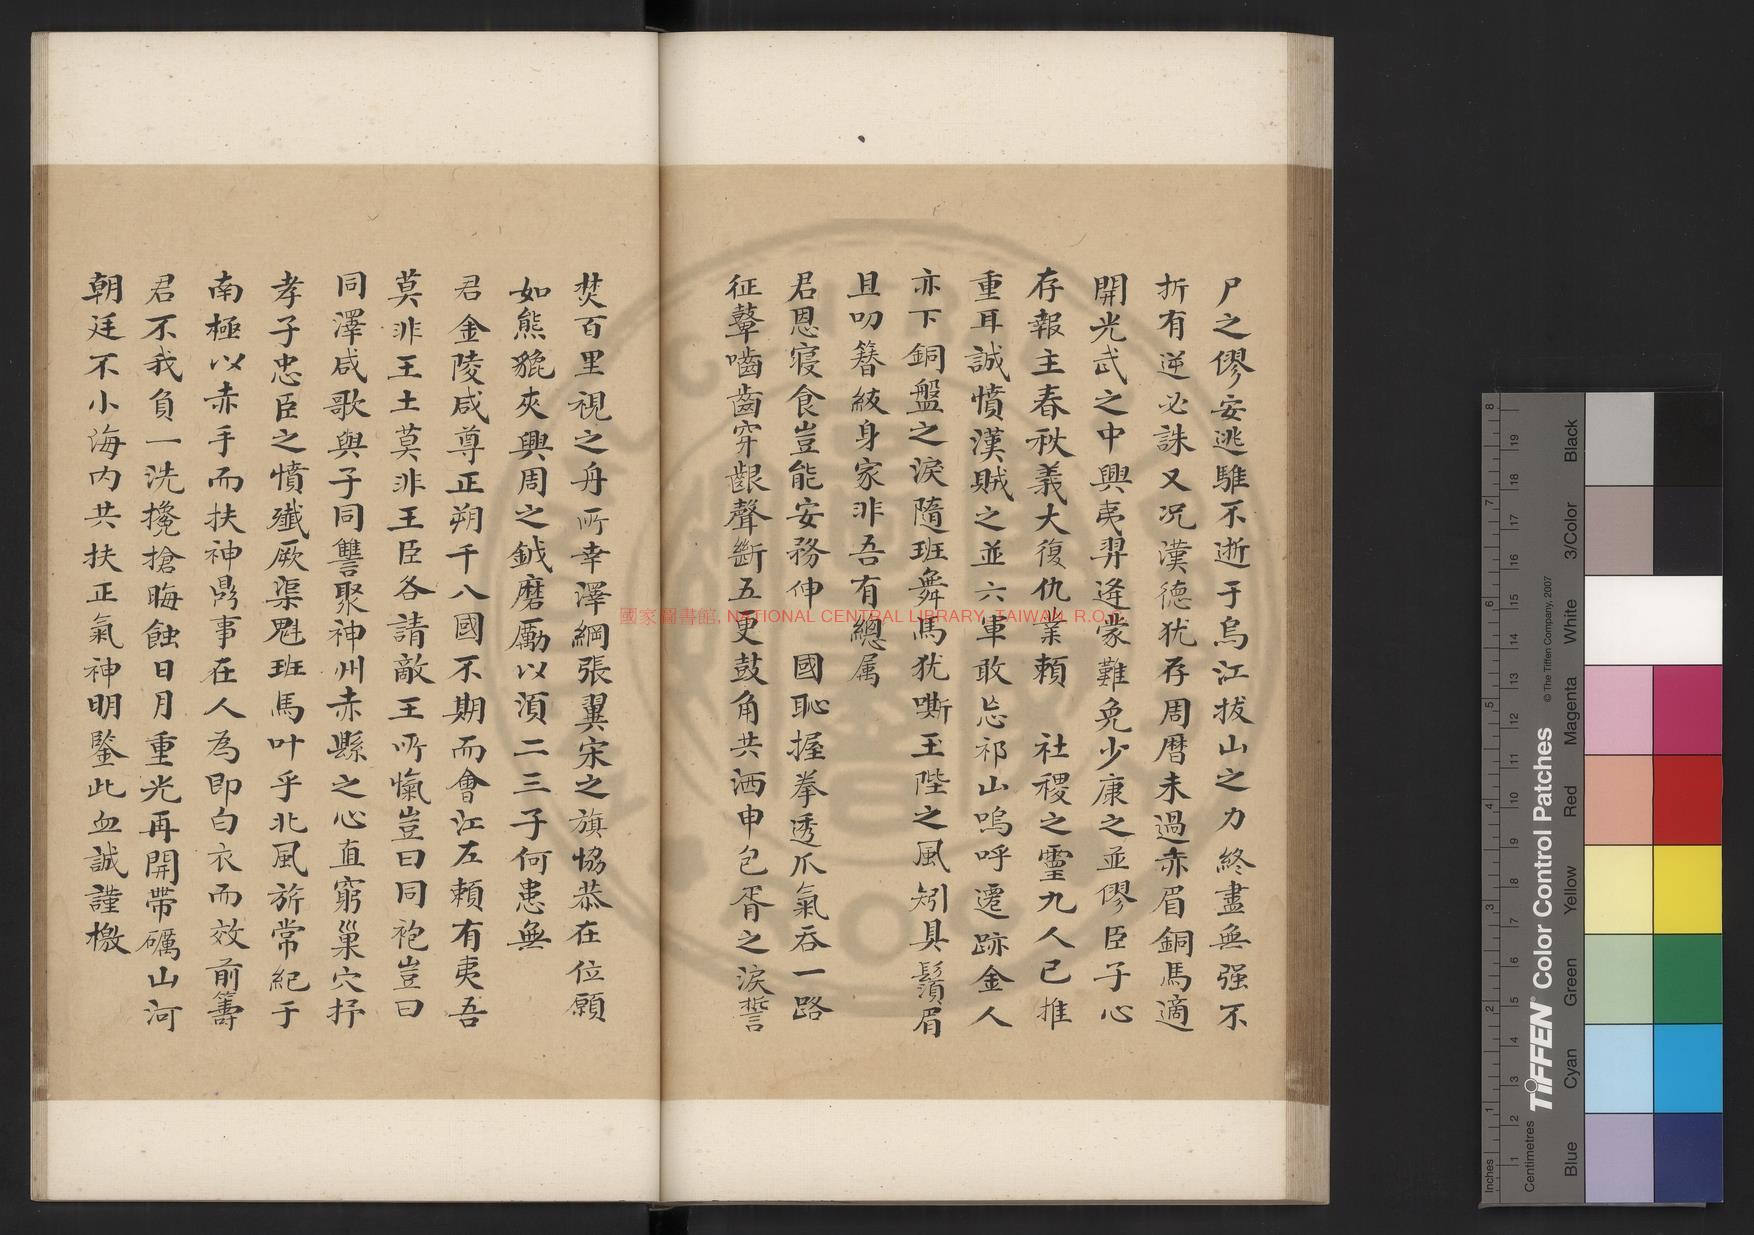 尸之僇安逃騅不逝于烏江拔山之力終盡無强不
折有逆必誅又况漢德犹存周曆未過赤眉銅馬適
開光武之中興夷羿逄蒙難免少康之並僇臣子心
存報主春秋義大復仇業賴　社稷之靈九人已推
重耳誠憤漢賊之並六軍敢忘祁山嗚呼遷跡金人
亦下銅盤之淚隨班舞馬犹嘶玉陛之風矧具鬚眉
且叨簪紱身家非吾有總属
君恩寝食豈能安務伸　國恥握拳透爪氣吞一路
征鼙嚙齒穿齦聲斷五更鼓角共洒申包胥之淚誓
焚百里視之舟所幸澤綱張翼宋之旗恊恭在位願
如熊貔夾興周之鉞磨勵以湏二三子何患無
君金陵咸尊正朔千八國不期而會江左賴有夷吾
莫非王土莫非王臣各請敵王所愾豈曰同袍豈曰
同澤咸歌與子同讐聚神州赤縣之心直窮巢穴抒
孝子忠臣之憤殲厥渠魁班馬叶乎北風旂常紀于
南極以赤手而扶神鼎事在人為即白衣而效前籌
君不我負一洗攙搶晦蝕日月重光再開帶礪山河
朝廷不小海内共扶正氣神明鑒此血誠謹檄
國家圖書館, NATIONAL CENTRAL LIBRARY, TAIWAN, R.O.C.
Inches
Centimetres
TIFFEN® Color Control Patches
© The Tiffen Company, 2007
Blue
Cyan
Green
Yellow
Red
Magenta
White
3/Color
Black